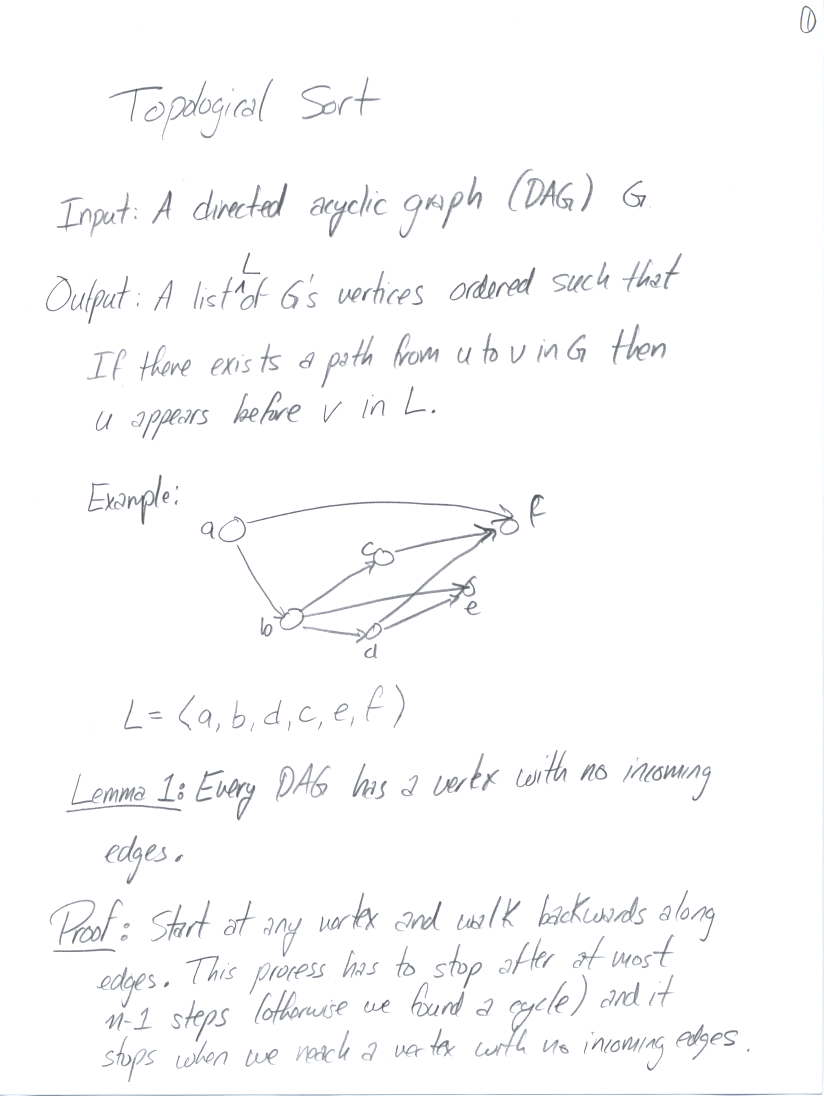 ①
Topological Sort
Input: A directed acyclic graph (DAG) G
Output: A list L of G's vertices ordered such that
If there exists a path from u to v in G then
u appears before v in L.
Example:
a
f
c
e
b
d
L = ⟨a, b, d, c, e, f⟩
Lemma 1: Every DAG has a vertex with no incoming
edges.
Proof: Start at any vertex and walk backwards along
edges. This process has to stop after at most
n-1 steps (otherwise we found a cycle) and it
stops when we reach a vertex with no incoming edges.